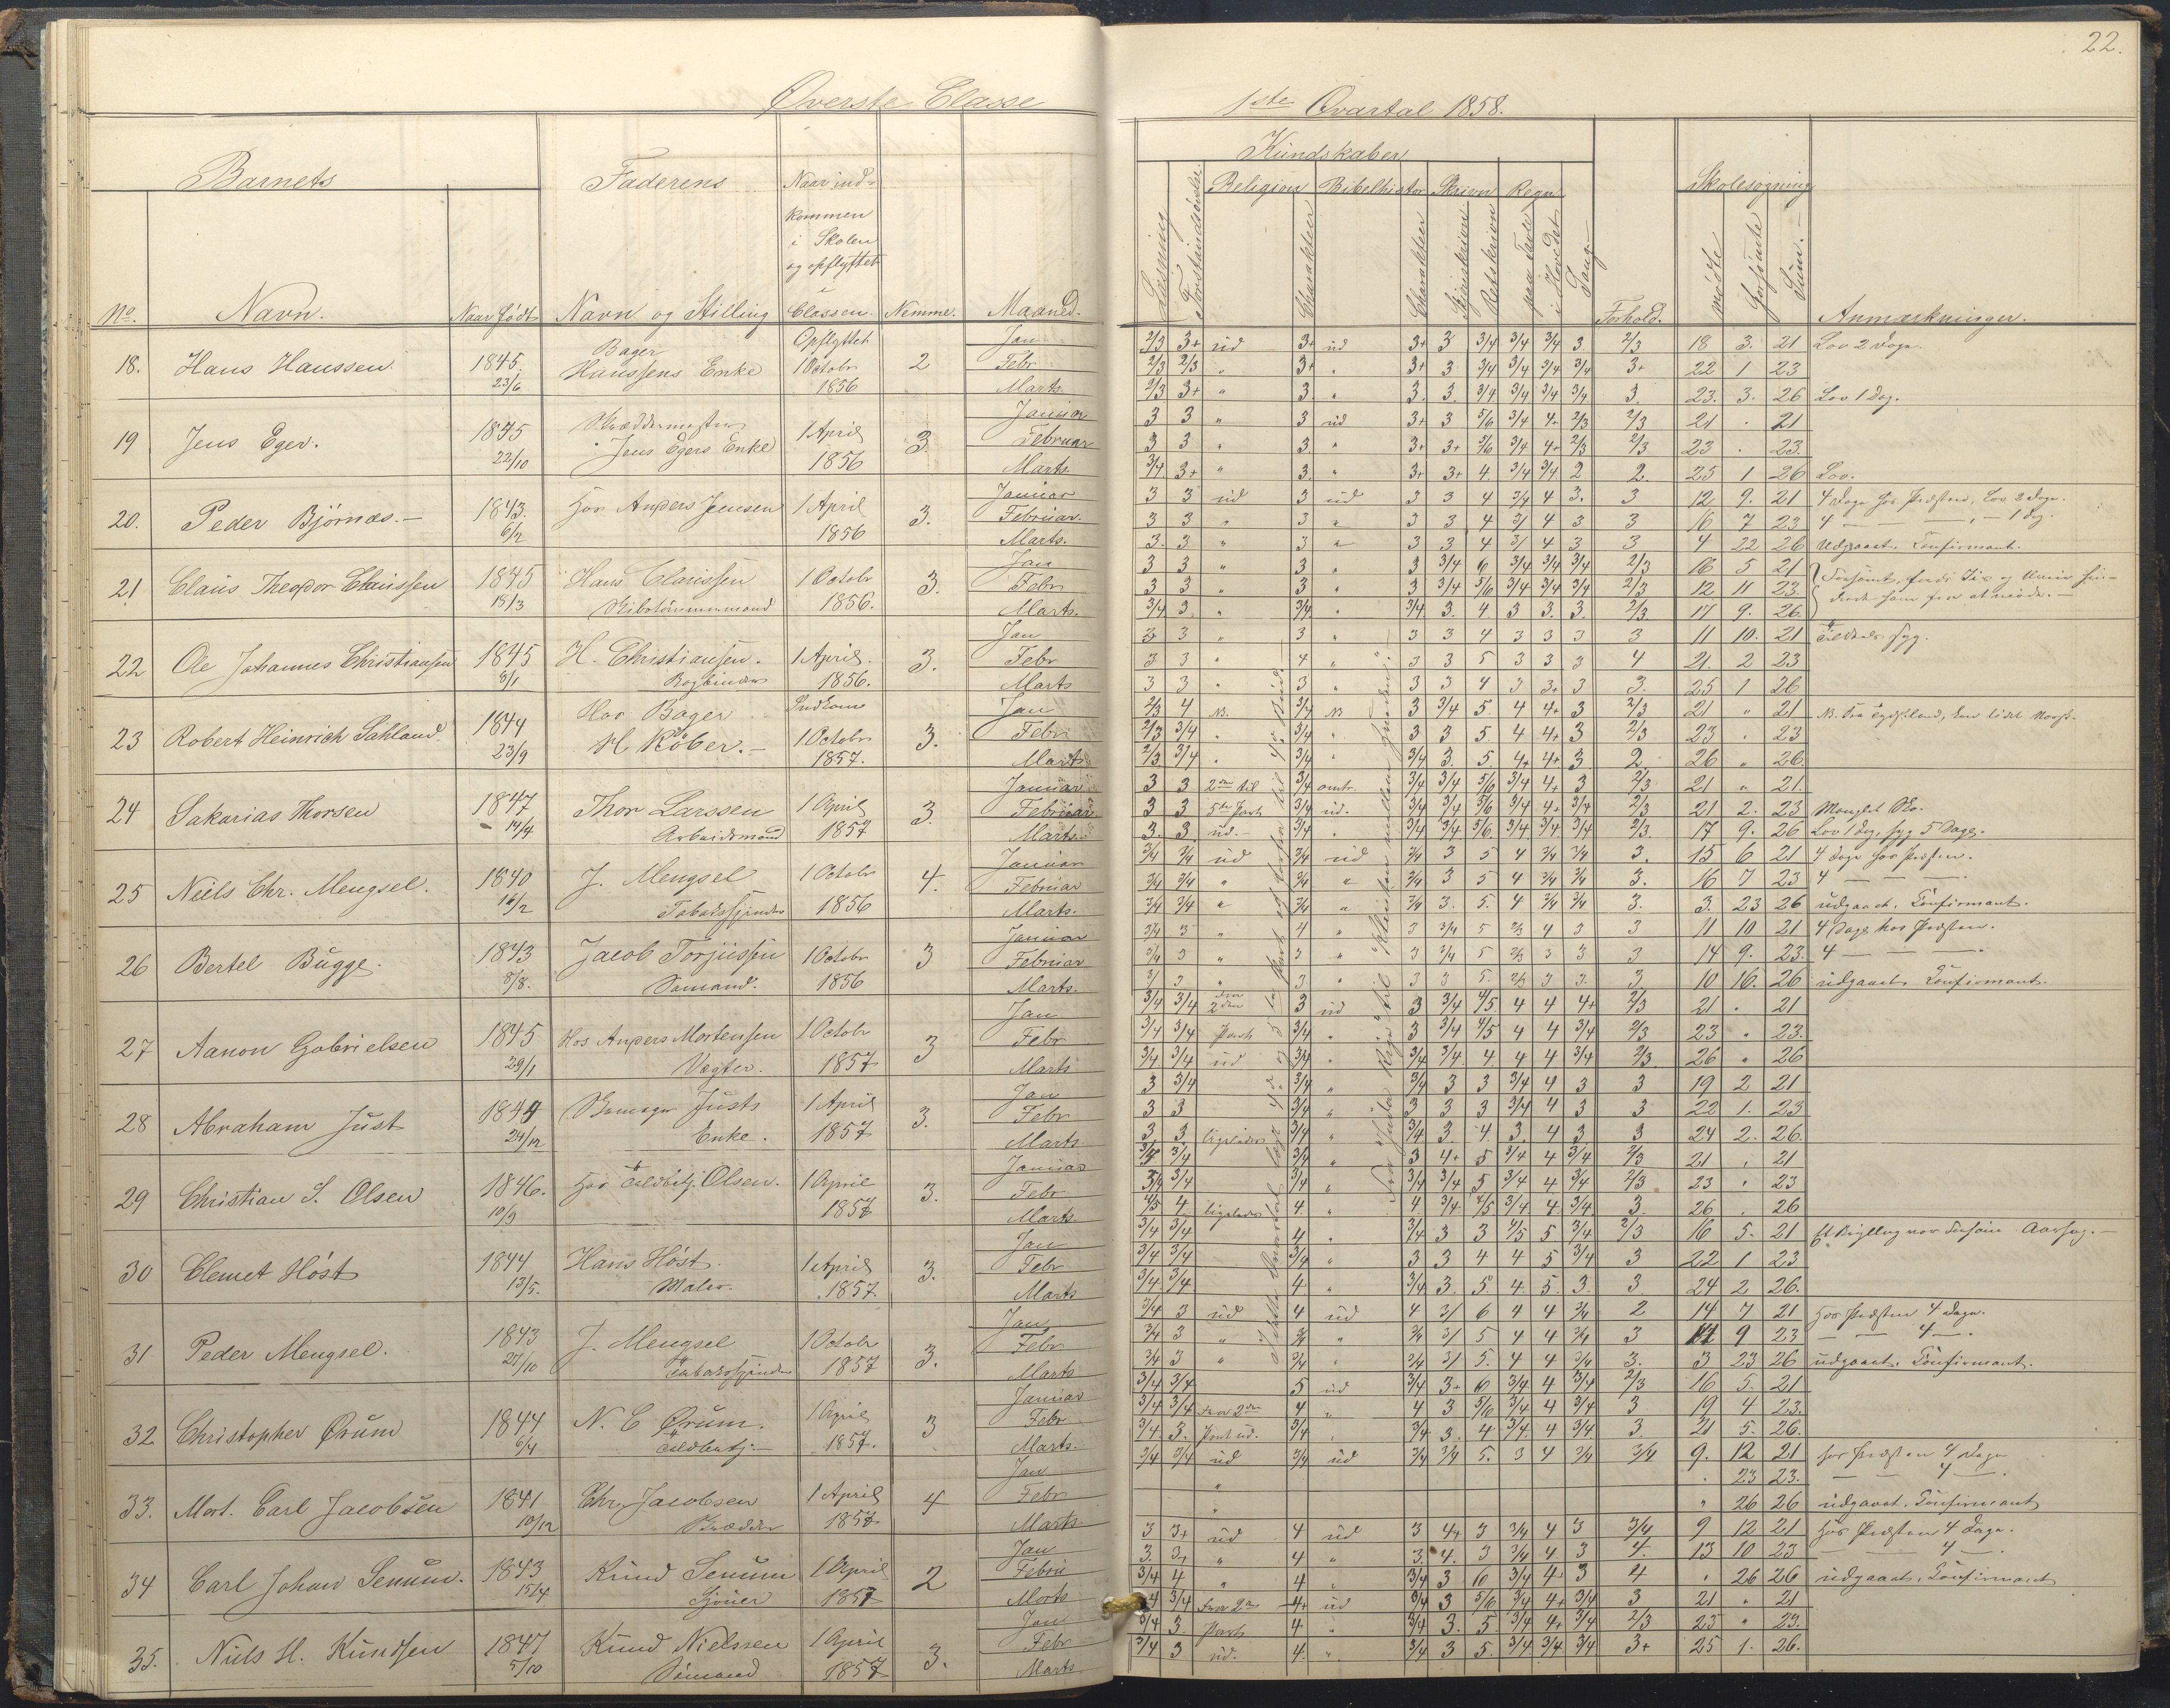 22.
Øverste Classe
1ste Qvartal 1858.
Barnets
Faderens
Naar ind-
kommen
i Skolen
og opflyttet
i
Classen.
Nemme.
Maaned.
No.
Navn.
Naar født
Navn og Stilling
Kundskaber
Læsning
Forstandsøvelse
Religion
Charakteer
Bibelhistor
Charakteer
Skrivn
Skjønskrivn
Retskrivn
Regn
paa Tavle
i Hovedet
Sang
Forhold.
Skolesøgning
mødte
forsømte
Sum.
Anmærkninger.
18. Hans Hanssen 1845. 23/6 Bager Hanssens Enke Opflyttet 1 Octobr 1856 2
Jan 2/3 3+ ud 3+ ud 3+ 3 3/4 3/4 3/4 3. 2/3 18 3. 21 Lov 2 Dage.
Febr 2/3 2/3 " 3+ " 3+ 3 3/4 3/4 3/4 3/4 3+ 22 1 23
Marts 2/3 3+ " 3 " 3. 3. 3/4 3/4 3/4 3/4 3. 23. 3. 26 Lov 1 Dag.
19 Jens Eger. 1845 22/10 Skræddermester Jens Egers Enke 1 April 1856 3.
Januar 3 3 " 3 ud 3+ 3 5/6 3/4 4+ 2/3 2/3 21 . 21
Februar 3 3 " 3. " 3+ 3+ 5/6 3/4 4+ 2/3 2/3 23 . 23.
Marts 3/4 3+ " 3. " 3+ 3+ 4. 3/4 3/4 2 2. 25 1 26 Lov.
20. Peder Bjørnæs. 1843. 6/2 Hos Anders Jensen 1 April 1856 3.
Januar 3 3 ud 3 ud 3 3 4 3/4 4 3. 3 12 9. 21 4 Dage hos Præsten, Lov 2 Dage.
Februar. 3 3 " 3 " 3 3 4 3/ 4 3 3 16 7 23 4 — — — 1 Dag.
Marts. 3. 3 " 3 " 3 3 4 3/ 4 3 3 4 22 26 Udgaaet. Confirmant.
21 Claus Theodor Claussen 1845 18/3 Hans Claussen Skibstømmermand 1 Octobr 1856. 3.
Jan 3 3 " 3 " 3 3/4 6 3/4 3/4 3/4 2/3 16 5 21
Febr 3 3 " 3 " 3 3/4 5/6 3/4 3/4 3/4 2/3 12 11 23.
Marts. 3/4 3. " 3/4 " 3/4 3. 4 3 3. 3. 2/3 17 9. 26.
22 Ole Johannes Christiansen 1845 8/1 H. Christiansen. Bogbinder 1 April. 1856. 3.
Jan 3 3 " 3 " 3 3 4 3 3 3 3 11 10. 21
Febr 3 3 " 4 " 3 3 5 3 3 3 4 21. 2 23
Marts 3 3 " 3 " 3 3 4 3 3+ 3 3. 25 1 26
23 Robert Heinrich Sahland. 1844 23/9 Hos Bager H Köber. Indkom 1 Octobr 1857. 3.
Jan 2/3 4 NB. 3/4 NB 3 3/4 5 4 4+ 3 2/3 21 " 21
Febr 2/3 3/4 . 3/4 " 3 3 5. 4 4+ 3 2/3 23 . 23
Marts 2/3 3/4 . 3/4 " 3/4 3. 5. 4+ 4+ 3 2. 26 " 26.
24 Sakarias Thorsen 1847 14/4 Thor Larssen Arbeidsmand 1 April 1857 3.
Januar 3 3 2den til 3/4 omtr. 3/4 3/4 5/6 3/4 4+ 3 2/3 21 " 21.
Februar 3 3 5te Part 3/4 ud. 3/4 3/4 5/6 3/4 4+ 3/4 2/3 21 2. 23 Manglet Sko.
Marts. 3. 3 ud. 3/4 . 3/4 3/4 5/6. 3/4 3/4 3/4 2/3. 17 9. 26 Lov 1 Dag, syg 5 Dage.
25 Niels Chr. Mengsel. 1840 16/2 J. Mengsel Tobaksspinder 1 Octobr 1856 4.
Januar 3/4 3/4 ud 3/4 ud 3/4 3 5 4 3/4 3/4 3. 15 6 21 4 Dage hos Præsten.
Februar 3/4 3/4 " 3/4 " 3/4 3 5 4 3/4 3/4 3. 16 7 23 4 — — —.
Marts. 3/4 3/4 " 3/4 " 3/4 3. 5. 4 3/4 3/4 3. 3. 23 26 udgaaet. Confirmant.
26 Bertel Bugge. 1843 8/8. Jacob Torjussen Sømand. 1 Octobr 1856 3
Januar 3/4 3 " 4 " 3 3/4 5 2/3 4 3 3 11 10 21 4 Dage hos Præsten.
Februar 3/4 3 " 3 " 3 3/4 5 2/3 3 3 3 14 9. 23. 4 — — —.
Marts. 3/ 3 " 3 " 3 3 5 2/3 3 3. 3. 10 16. 26 udgaaet. Confirmant.
27 Aanon Gabrielsen 1845 29/1 Hos Anders Mortensen Vægter. 1 Octobr 1857 3
Jan 3/4 3/4 fra 2den 3 ud 3 3/4 4/5 4 4 4+ 2/3 21 . 21
Febr 3/4 3/4 Part 3/4 " 3 3/4 4/5 4 4 3/4 2/3 23 " 23.
Marts 3/4 3/4 ud 3/4 " 3/4 3/4 4. 4 4 3/4 2/3. 26 " 26
28 Abraham Just 1844 24/12 Justs Enke. 1 April 1857 3.
Jan 3 3/4 3/4 " 3/4 3 3 3/4 4 3 3 19 2 21
Febr 3 3 3/4 " 3 3 3 3/4 4 3 3 22 1. 23
Marts 3 3 ligeledes 3/4 " 3/4 3. 4. 3. 4 3 3 24 2. 26.
29 Christian S. Olsen 1846. 10/9 Hos Toldbetj. Olsen. 1 April 1857 3.
Januar 3/4 3/4 3/4 " 3 4+ 5 3/4 4 3/4 2/3 21 . 21
Febr 3/4 3/4 3/4 " 3/4 3/4 5 3/4 4 3/4 2/3 23 . 23
Marts 4/5 4. ligeledes 4. " 4. 3/4 4/5 3/4 4 3/4 3. 26 . 26
30 Clemet Høst 1844 13/5. Hans Høst. Maler. 1 April 1857. 3.
Jan 3/4 3/4 4 " 3/4 3 3 4/5 5 3/4 2/3 16 5. 21
Febr 3/4 3/4 3/4 " 3 3 4 4 5 3/4 3 22 1 23
Marts 3/4 3/4 4 " 3/4 3. 5. 4. 5. 3. 3 24 2 26.
31 Peder Mengsel. 1843 27/10 J. Mengsel Tobaksspinder 1 Octobr 1857 3.
Jan 3/4 3 ud 4 ud 4 3/ 6 4 4 3/4 2 14 7 21 Hos Præsten 4 Dage.
Febr 3/4 3 " 3/4 " 3/4 3/ 5 4 4 3/4 3 14 9 23 — — 4 —.
Marts 3/4 3 " 3/4 " 3/4 3/ 5. 4 4 3/4 3. 3 23 26 udgaaet. Confirmant.
32 Christopher Ørum 1844 6/4 N. C Ørum. Toldbetj. 1 April 1857. 3
Januar 3/4 3/4 5 ud 3/4 3+ 6 3/4 4 3/4 2/3 16 5. 21
Febr 3/4 3/4 fra 2den 4 " 4 3 5/6 3/4 4 3/4 3 19 4 23.
Marts. 3/4 3. Part ud. 3/4 . 3/4 3. 4 3/4 4 3/4 3. 21 5. 26.
33. Mort. Carl Jacobsen 1841 10/12 Chr. Jacobsen Skrædder 1 April 1857 4
Jan 3/4 3/4 ud 3/4 ud 3/4 3/4 5. 3 4 3/4 3/4 9. 12 21 hos Præsten 4 Dage
Febr " . 23 23. — — 4 —.
Marts " " 26 26 udgaaet. Confirmant
34 Carl Johan Senum. 1843 15/4 Knud Senum 1 April 1857 2
Jan 3 3+ ud 4 ud 3 4+ 3 3/4 4 3 3/4 9 12 21 hos Præsten 4 Dage.
Febr 3. 3, " 4 " 3. 4. 3 3/4 4 3 4. 13 10 23 — — 4 —.
Marts 3/4 4 " 4 " 3/4 3 6 3/4 4 3 4 . 26 26 udgaaet. Confirmant
35. Niels H. Knudsen 1847 5/10 Knud Nielssen Sømand 1 April 1857 3.
Jan 4 3/4 fra 2den 4+ ud 3/4 3 5/6 3/4 4+ 3/4 3 21 " 21
Febr 3/4 3 Part 4 " 3/4 3. 5. 3/4 4+ 3/4 2/3 23 " 23.
Marts 3/4 3 ud. 4. " 3/4 3 5. 3/4 3/4 3/4 3+ 25 1. 26.